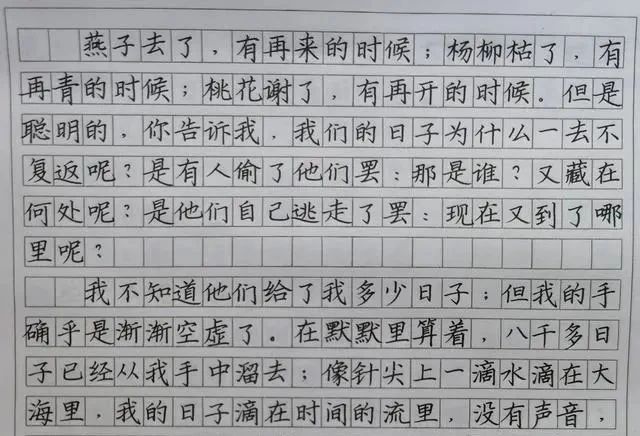 燕子去了，有再来的时候；杨柳枯了，有
再青的时候；桃花谢了，有再开的时候。但是
聪明的，你告诉我，我们的日子为什么一去不
复返呢？是有人偷了他们罢：那是谁？又藏在
何处呢？是他们自己逃走了罢：现在又到了哪
里呢？
我不知道他们给了我多少日子；但我的手
确乎是渐渐空虚了。在默默里算着，八千多日
子已经从我手中溜去；像针尖上一滴水滴在大
海里，我的日子滴在时间的流里，没有声音，